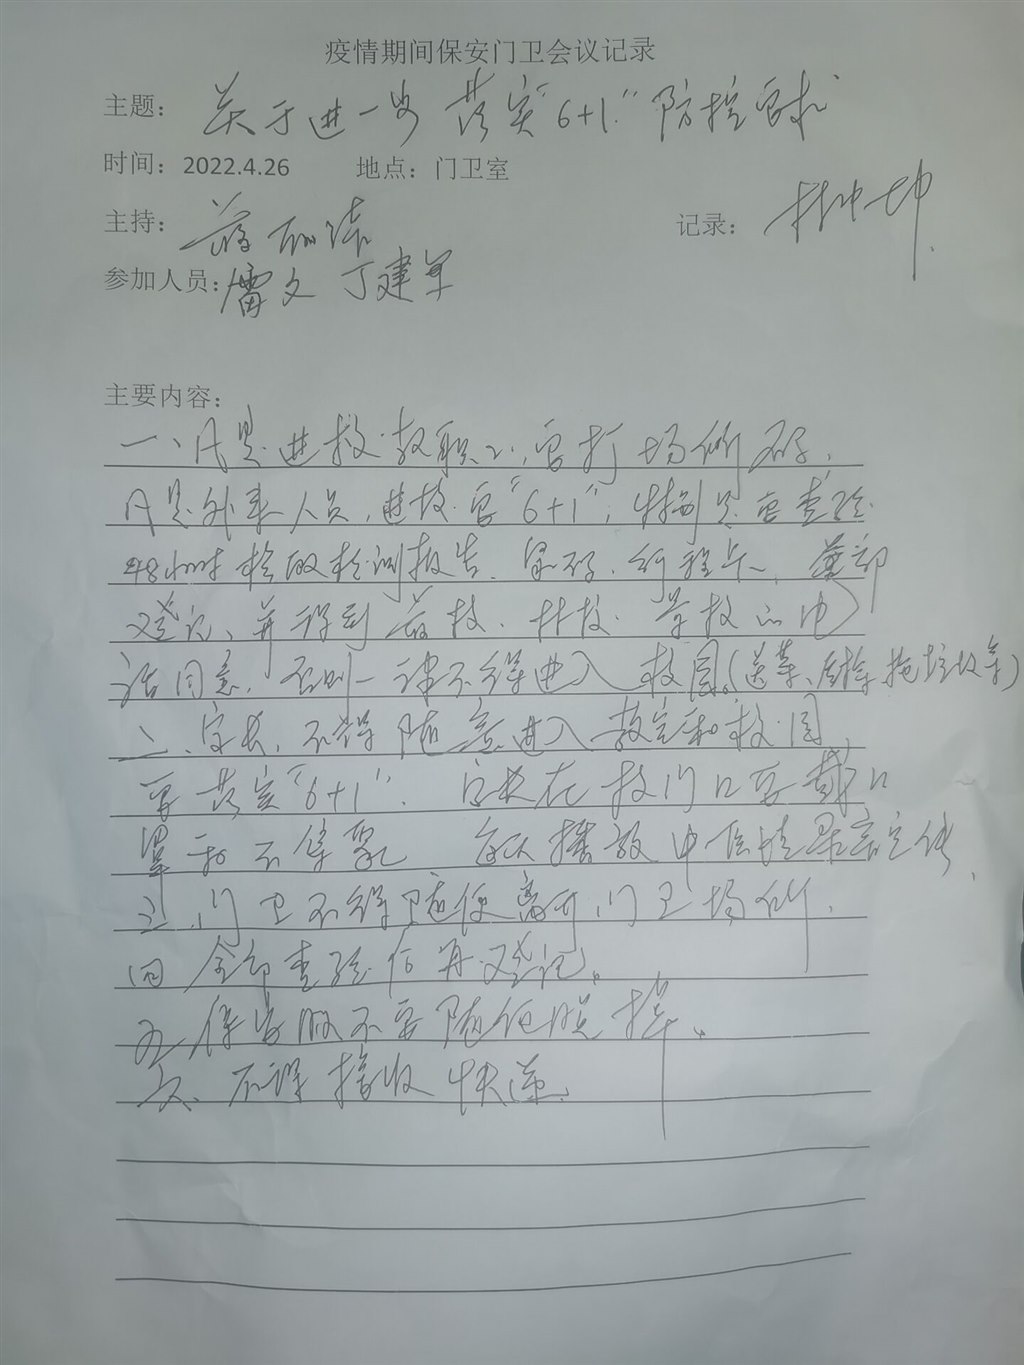 疫情期间保安门卫会议记录
主题： 关于进一步落实"6+1"防控要求
时间：2022.4.26 地点：门卫室
主持： 蒋 记录： 林中坤
参加人员：雷文 丁建军
主要内容：
一、凡是进校教职工，要打场所码，
凡是外来人员，进校要"6+1"，特别是要查验
48小时核酸检测报告、绿码、行程卡，全部
登记，并得到蒋校、林校、学校的电
话同意，否则一律不得进入校园。(送菜、维修、拖垃圾等)
二、家长，不得随意进入教室和校园
要落实"6+1"，家长在校门口要戴口
罩和不集聚 播放
三、门卫不得随便离开门卫场所，
四 全部查验后再登记。
五、保安服不要随便脱掉。
六、不得接收快递。